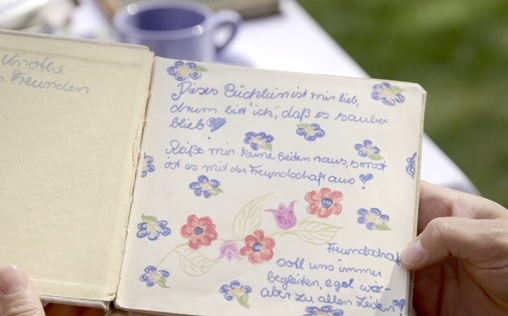 Freunden
Dieses Büchlein ist mir lieb,
drum bitt' ich, daß es sauber
blieb!
Reißt mir keine Seiten raus, sonst
ist es mit der Freundschaft aus!
Freundschaft
soll uns immer
begleiten, egal wo-
aber zu allen Zeiten!